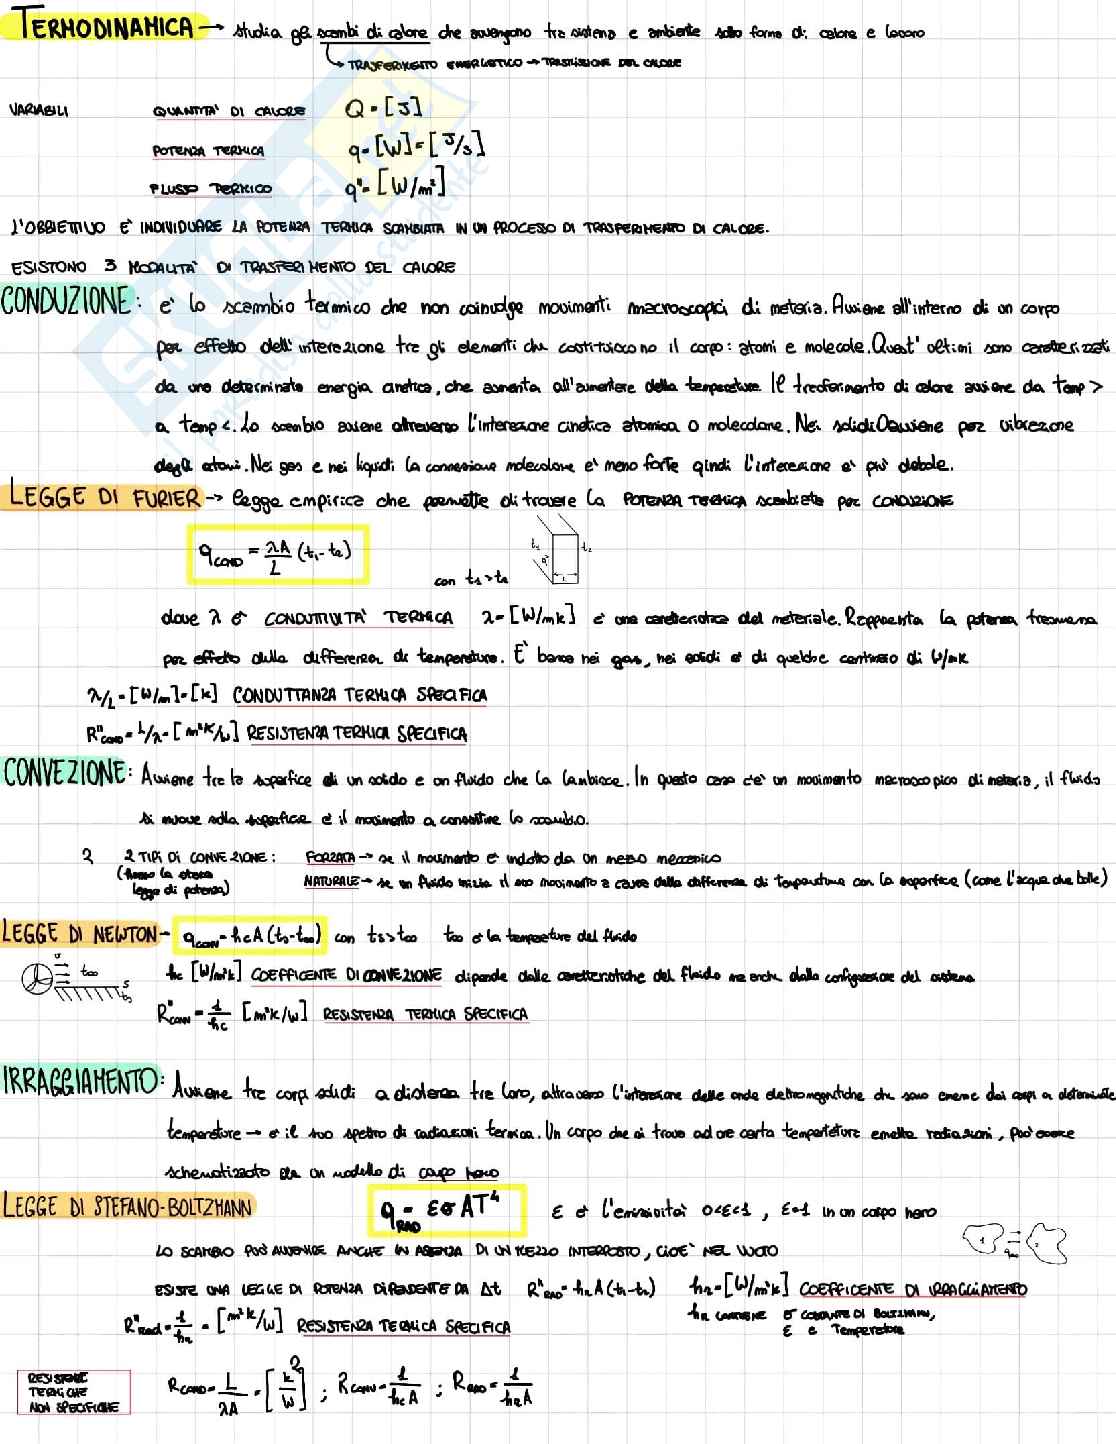 TERMODINAMICA → studia gli scambi di calore che avvengono tra sistema e ambiente sotto forma di calore e lavoro
↳ TRASFERIMENTO ENERGETICO → TRASMISSIONE DEL CALORE
VARIABILI QUANTITA' DI CALORE Q = [J]
POTENZA TERMICA q = [W] = [J/s]
FLUSSO TERMICO q" = [W/m²]
L'OBBIETTIVO E' INDIVIDUARE LA POTENZA TERMICA SCAMBIATA IN UN PROCESSO DI TRASFERIMENTO DI CALORE.
ESISTONO 3 MODALITA' DI TRASFERIMENTO DEL CALORE
CONDUZIONE: e' lo scambio termico che non coinvolge movimenti macroscopici di materia. Avviene all'interno di un corpo
per effetto dell'interazione tra gli elementi che costituiscono il corpo: atomi e molecole. Quest'ultimi sono caratterizzati
da una determinata energia cinetica, che aumenta all'aumentare della temperatura. Il trasferimento di calore avviene da temp >
a temp <. Lo scambio avviene attraverso l'interazione cinetica atomica o molecolare. Nei solidi avviene per vibrazione
degli atomi. Nei gas e nei liquidi la connessione molecolare e' meno forte quindi l'interazione e' più debole.
LEGGE DI FURIER → legge empirica che permette di trovare la POTENZA TERMICA scambiata per CONDUZIONE
q COND = λA/L (t₁-t₂)
t₁ t₂ L
con t₁>t₂
dove λ è CONDUTTIVITA' TERMICA λ = [W/mk] è una caratteristica del materiale. Rappresenta la potenza trasmessa
per effetto della differenza di temperatura. E' bassa nei gas, nei solidi è di qualche centinaio di W/mk
λ/L = [W/m]·[k] CONDUTTANZA TERMICA SPECIFICA
R"cond = L/λ = [m²K/W] RESISTENZA TERMICA SPECIFICA
CONVEZIONE: Avviene tra la superficie di un solido e un fluido che la lambisce. In questo caso c'è un movimento macroscopico di materia, il fluido
si muove sulla superficie e il movimento a consentire lo scambio.
2 2 TIPI DI CONVEZIONE: FORZATA → se il movimento e' indotto da un mezzo meccanico
(hanno la stessa
legge di potenza) NATURALE → se un fluido inizia il suo movimento a causa della differenza di temperatura con la superficie (come l'acqua che bolle)
LEGGE DI NEWTON - q conv = hcA (ts-t∞) con ts>t∞ t∞ è la temperatura del fluido
t∞ S ts
hc [W/m²k] COEFFICENTE DI CONVEZIONE dipende dalle caratteristiche del fluido ma anche dalla configurazione del sistema
R"conv = 1/hc [m²K/W] RESISTENZA TERMICA SPECIFICA
IRRAGGIAMENTO: Avviene tra corpi solidi a distanza tra loro, attraverso l'interazione delle onde elettromagnetiche che sono emesse dai corpi a determinate
temperature → è il suo spettro di radiazioni termica. Un corpo che si trova ad una certa temperatura emette radiazioni, può essere
schematizzato da un modello di corpo nero
LEGGE DI STEFANO-BOLTZMANN q RAD = εσAT⁴ ε è l'emissività 0<ε<1, ε=1 in un corpo nero
LO SCAMBIO PUO' AVVENIRE ANCHE IN ASSENZA DI UN MEZZO INTERPOSTO, CIOE' NEL VUOTO
ESISTE UNA LEGGE DI POTENZA DIPENDENTE DA Δt R"RAD = hrA(t₁-t₂) hr = [W/m²k] COEFFICENTE DI IRRAGGIAMENTO
hr CONTIENE σ COSTANTE DI BOLTZMANN,
ε e Temperatura
R"rad = 1/hr = [m²K/W] RESISTENZA TERMICA SPECIFICA
RESISTENZE
TERMICHE
NON SPECIFICHE
Rcond = L/λA = [k/W] ; Rconv = 1/hcA ; Rrad = 1/hrA